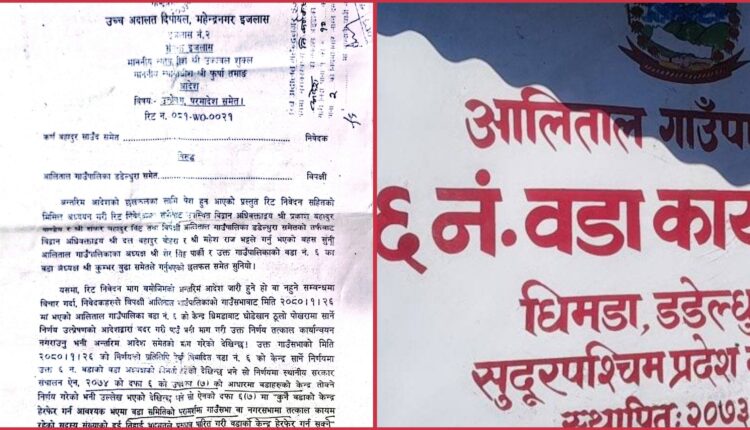 उच्च अदालत दिपायल, महेन्द्रनगर इजलास
इजलास नं.२
माननीय न्यायाधीश श्री
माननीय न्यायाधीश श्री फुर्पा तामाङ
आदेश
विषय:- उत्प्रेषण, परमादेश समेत।
रिट नं. ०८१-WO-००२१
कर्ण बहादुर साउँद समेत
निवेदक
विरुद्ध
आलिताल गाउँपालिका डडेल्धुरा समेत
विपक्षी
अन्तरिम आदेशको छलफलका लागि पेश हुन आएको प्रस्तुत रिट निवेदन सहितको
मिसिल अध्ययन गरी रिट निवेदकका तर्फबाट उपस्थित विद्वान अधिवक्ताद्वय श्री प्रकाश बहादुर
र श्री शंकर बहादुर सिंह तथा विपक्षी आलिताल गाउँपालिका डडेल्धुरा समेतको तर्फबाट
विद्वान अधिवक्ताद्वय श्री दत्त बहादुर बोहरा र श्री महेश राज भट्टले गर्नु भएको बहस सुनी
आलिताल गाउँपालिकाका अध्यक्ष श्री शेर सिंह पार्की र उक्त गाउँपालिकाको वडा नं. ६ का
वडा अध्यक्ष श्री कुम्भर बुढा समेतले गर्नुभएको छलफल समेत सुनियो।
यसमा, रिट निवेदन माग बमोजिमको अन्तरिम आदेश जारी हुने हो वा नहुने सम्बन्धमा
विचार गर्दा, निवेदकहरुले विपक्षी आलिताल गाउँपालिकाको गाउँसभाबाट मिति २०८०।१।२६
मा भएको आलिताल गाउँपालिका वडा नं. ६ को केन्द्र धिमडाबाट घोडेखान ठूलो पोखरामा सार्ने
निर्णय उत्प्रेषणको आदेशद्वारा बदर गरी पाउँ भनी माग गरी उक्त निर्णय तत्काल कार्यान्वयन
नगराउनु भनी अन्तरिम आदेश समेतको माग गरेको देखिन्छ। उक्त गाउँसभाको मिति
२०८०।१।२६ को निर्णयको प्रतिलिपि हेर्दा विवादित वडा नं. ६ को केन्द्र सार्ने निर्णयमा
उक्त ६ न. वडाको वडा अध्यक्षको देखिन्छ भने सो निर्णयमा स्थानीय सरकार
संचालन ऐन, २०७४ को दफा ६ को उपदफा (७) को आधारमा वडाहरुको केन्द्र तोक्ने
निर्णय गरेको भनी उल्लेख भएको देखिन्छ भने सो ऐनको दफा ६(७) मा "कुनै वडाको केन्द्र
हेरफेर गर्न आवश्यक भएमा वडा समितिको परामर्शमा गाउँसभा वा नगरसभामा तत्काल कायम
रहेको सदस्य संख्याको दुई तिहाई बहुमतले प्रस्ताव पारित गरी वडाको केन्द्र हेरफेर गर्न सक्ने
आलिताल गाउँपा
६ नं. वडा कार्य
धिमडा, डडेल्धु
सुदूरपश्चिम प्रदेश
स्थापित: २०७३